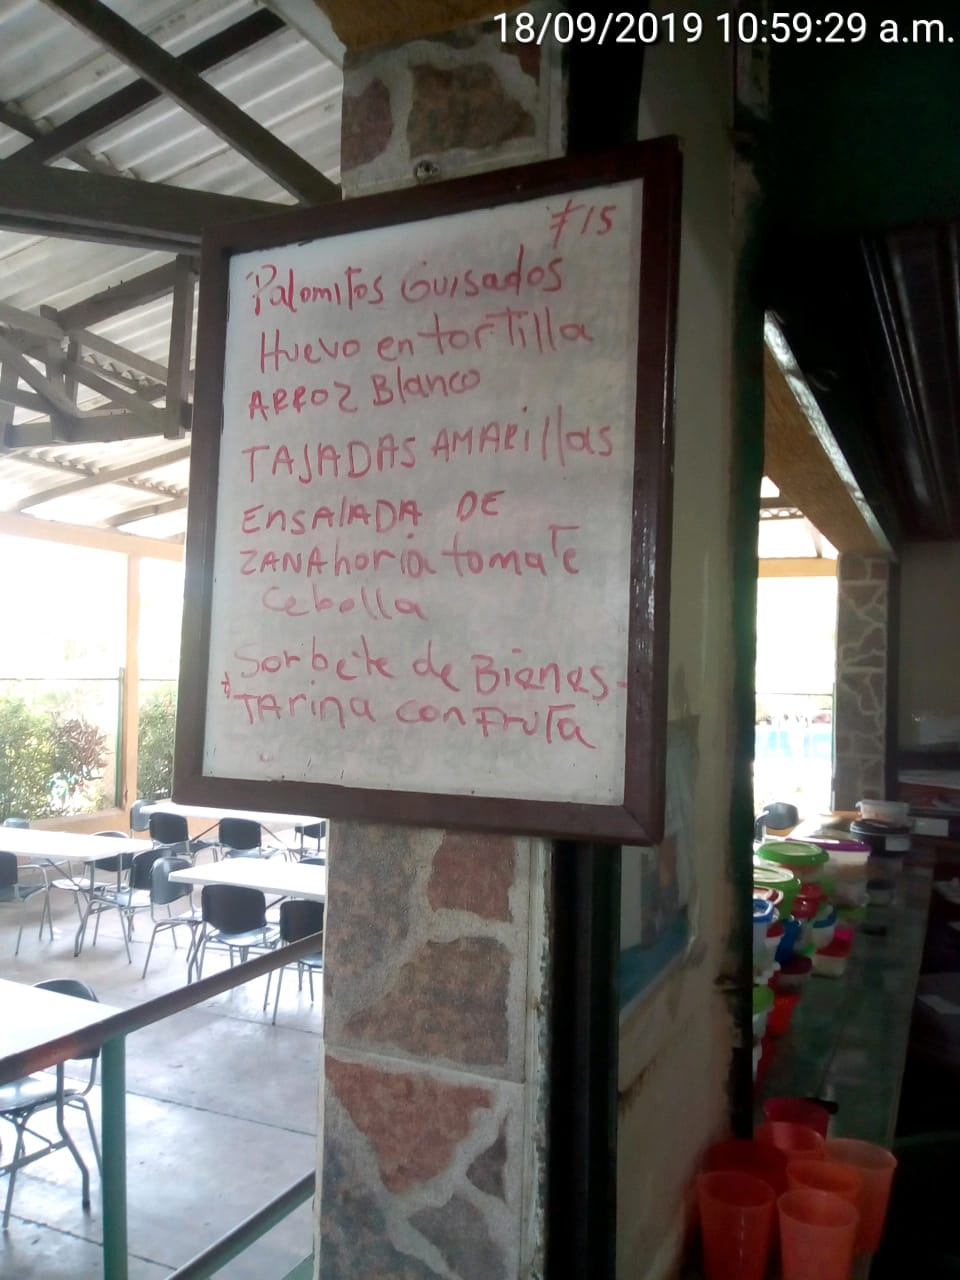 18/09/2019 10:59:29 a.m.
#15
Palomitos Guisados
Huevo en tortilla
ARROZ Blanco
TAJADAS AMARillas
EnsAlADA DE
ZANAhoria tomaTE
Cebolla
Sorbete de Bienes-
TArina con FruTa